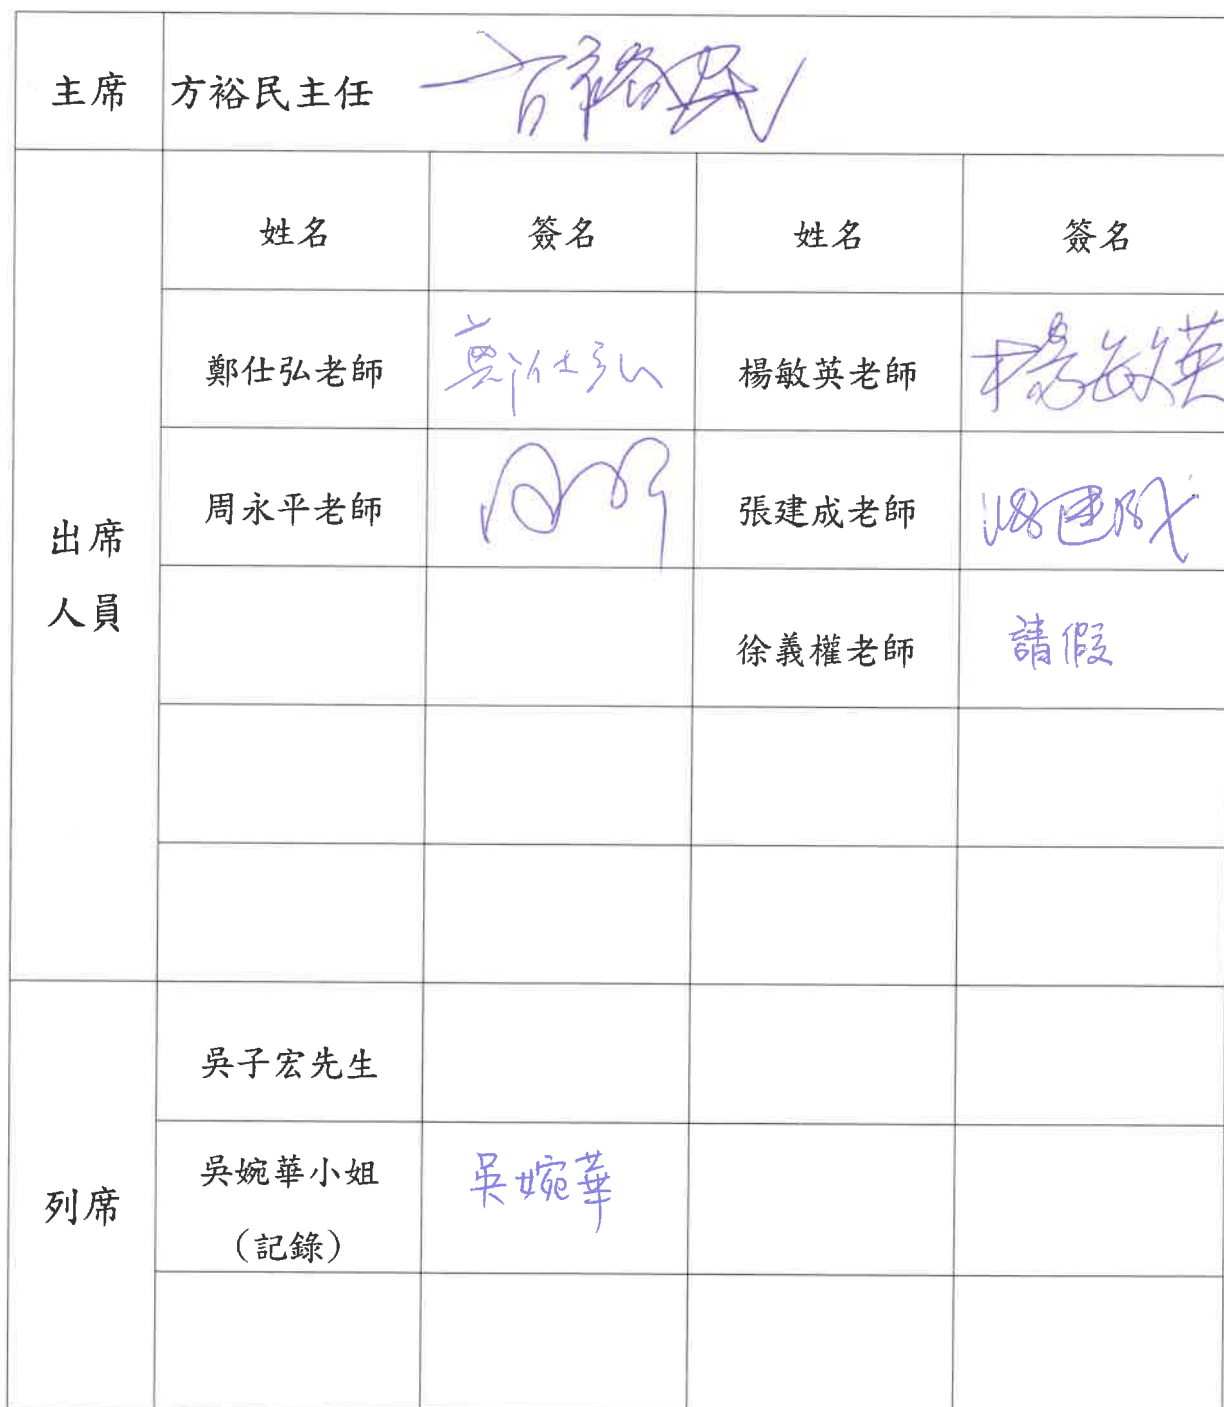 主席 方裕民主任 方裕民
出席人員
姓名 簽名 姓名 簽名
鄭仕弘老師 鄭仕弘 楊敏英老師 楊敏英
周永平老師 張建成老師 張建成
徐義權老師 請假
列席
吳子宏先生
吳婉華小姐 吳婉華
（記錄）